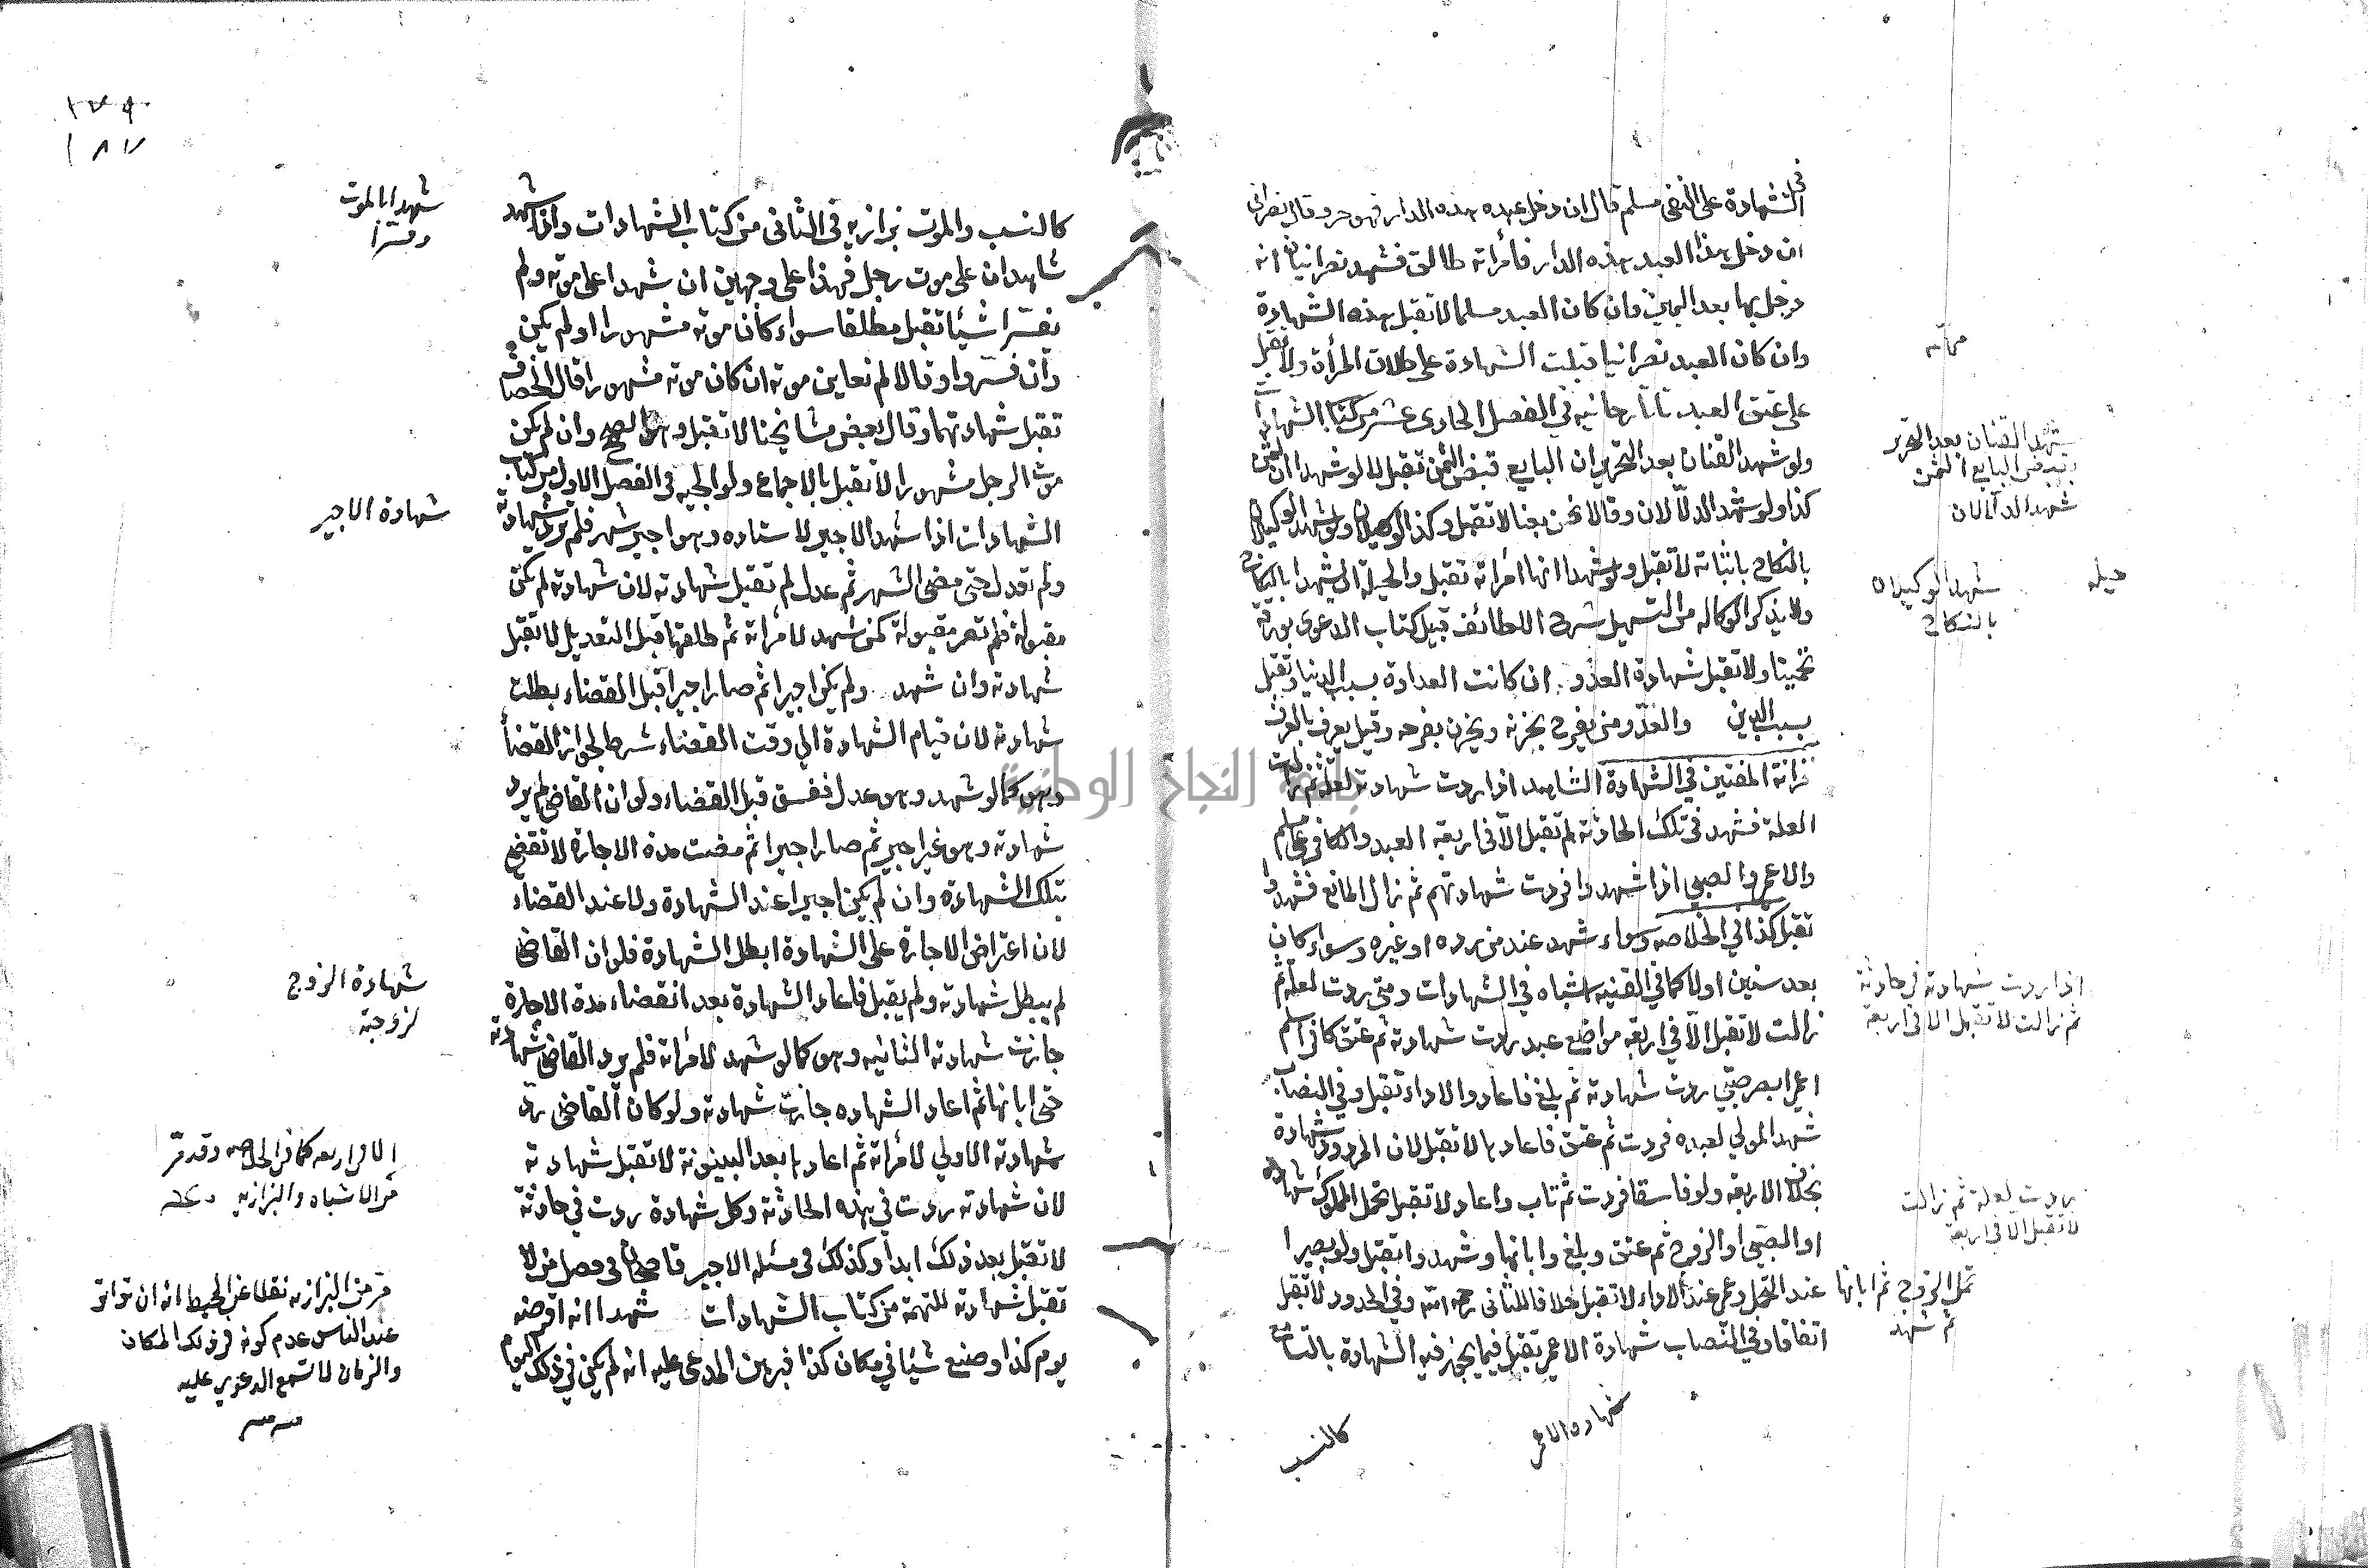 في الشهادة على النفى مسلم قال ان دخل عبده هذه الدار فهو حر وقال نصرانى
ان دخل هذا العبد هذه الدار فامرأته طالق فشهد نصرانيان انه
دخل بها بعد اليمين وان كان العبد مسلما لا تقبل هذه الشهادة
وان كان العبد نصرانيا قبلت الشهادة على طلاق المرأة ولا تقبل
على عتق العبد تاتارخانيه في الفصل الحادى عشر من كتاب الشهادات
ولو شهد القنان بعد التحرير ان البايع قبض الثمن تقبل لا لو شهد ان الثمن
كذا ولو شهد الدلالان وقالا نحن بعنا لا تقبل وكذا الوكيلان ولو شهد الوكيلان
بالنكاح باثباته لا تقبل ولو شهدا انها امرأته تقبل والحيلة ان يشهدا بالنكاح
ولا يذكر الوكاله من التسهيل شرح اللطائف قبيل كتاب الدعوى بورقة
تخمينا ولا تقبل شهادة العدو ان كانت العداوة بسبب الدنيا وتقبل
بسبب الدين والعدو من يفرح بحزنه ويحزن بفرحه وقيل يعرف بالعرف
خزانة المفتين في الشهادة الشاهد اذا ردت شهادته لعلة ثم زالت
العلة فشهد في تلك الحادثة لم تقبل الا في اربعة العبد والكافر على مسلم
والاعمى والصبى اذا شهدوا فردت شهادتهم ثم زال المانع فشهدوا
تقبل كذا في الخلاصه وسواء شهد عند من رده او غيره وسواء كان
بعد سنين اولا كما في القنيه اشباه في الشهادات ومتى ردت لعلة ثم
زالت لا تقبل الا في اربعة مواضع عبد ردت شهادته ثم عتق كافر اسلم
اعمى ابصر صبى ردت شهادته ثم بلغ فاعادوا الاداء تقبل وفي النصاب
شهد المولى لعبده فردت ثم عتق فاعادها لا تقبل لان المردود شهادة
بخلاف الاربعة ولو فاسقا فردت ثم تاب واعاد لا تقبل تحمل المملوك شهادة
او الصبى او الزوج ثم عتق وبلغ وابانها وشهدوا تقبل ولو بصيرا
عند التحمل وعمى عند الاداء لا تقبل خلافا للثانى رحمه الله وفي الحدود لا تقبل
اتفاقا وفي النصاب شهادة الاعمى تقبل فيما يجوز فيه الشهادة بالتسامع
كالنسب
شهادة الاعمى
مهمه
شهد القنان بعد التحرير
بقبض البايع الثمن
شهد الدلالان
شهد الوكيلان
بالنكاح
حيله
اذا ردت شهادته في حادثة
ثم زالت لا تقبل الا في اربعة
ردت لعلة ثم زالت
لا تقبل الا في اربعة
تحمل الزوج ثم ابانها
ثم شهد
١٨٧
كالنسب والموت بزازيه في الثانى من كتاب الشهادات واذا شهد
شاهدان على موت رجل فهذا على وجهين ان شهدا على موته ولم
يفسرا شيأ تقبل مطلقا سواء كان موته مشهورا او لم يكن
وان فسروا وقالا لم نعاين موته ان كان موته مشهورا قال الخصاف
تقبل شهادتهما وقال بعض مشايخنا لا تقبل وهو الصحيح وان لم يكن
موت الرجل مشهورا لا تقبل بالاجماع ولوالجيه في الفصل الاول من كتاب
الشهادات اذا شهد الاجير لاستاده وهو اجير شهر فلم ترد شهادته
ولم تعدل حتى مضى الشهر ثم عدل لم تقبل شهادته لان شهادته لم تكن
مقبولة فلم تصر مقبولة كمن شهد لامرأته ثم طلقها قبل التعديل لا تقبل
شهادته وان شهد ولم يكن اجيرا ثم صار اجيرا قبل القضاء بطلت
شهادته لان قيام الشهادة الى وقت القضاء شرط لجواز القضاء
وهو كما لو شهد وهو عدل ففسق قبل القضاء ولو ان القاضى لم يرد
شهادته وهو غير اجير ثم صار اجيرا ثم مضت مدة الاجارة لا تقضى
بتلك الشهادة وان لم يكن اجيرا عند الشهادة ولا عند القضاء
لان اعتراض الاجارة على الشهادة ابطل الشهادة فلو ان القاضى
لم يبطل شهادته ولم يقبل فاعاد الشهادة بعد انقضاء مدة الاجارة
جازت شهادته الثانيه وهو كما لو شهد لامرأته فلم يرد القاضى شهادته
حتى ابانها ثم اعاد الشهاده جازت شهادته ولو كان القاضى رد
شهادته الاولى لامرأته ثم اعادها بعد البينونة لا تقبل شهادته
لان شهادته ردت في هذه الحادثة وكل شهادة ردت في حادثة
لا تقبل بعد ذلك ابدا وكذلك في مسئلة الاجير قاضيخان في فصل من لا
تقبل شهادته للتهمة من كتاب الشهادات شهدا انه اقرضه
يوم كذا وصنع شيأ في مكان كذا فبرهن المدعى عليه انه لم يكن في ذلك اليوم
شهدا بالموت
وفسرا
شهادة الاجير
شهادة الزوج
لزوجته
الا في اربعه كما في الخلاصه وقد مر
من الاشباه والبزازيه
مر من البزازيه نقلا عن المحيط انه ان تواتر
عند الناس عدم كونه في ذلك المكان
والزمان لا تسمع الدعوى عليه
جامعة النجاح الوطنية